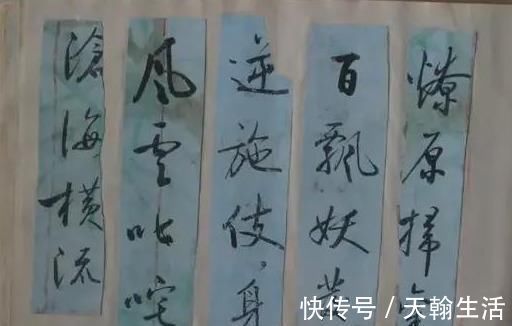 燎原掃
百飄妖
逆施伎,身
風雲叱咤
滄海橫流
快传号 / 天翰生活